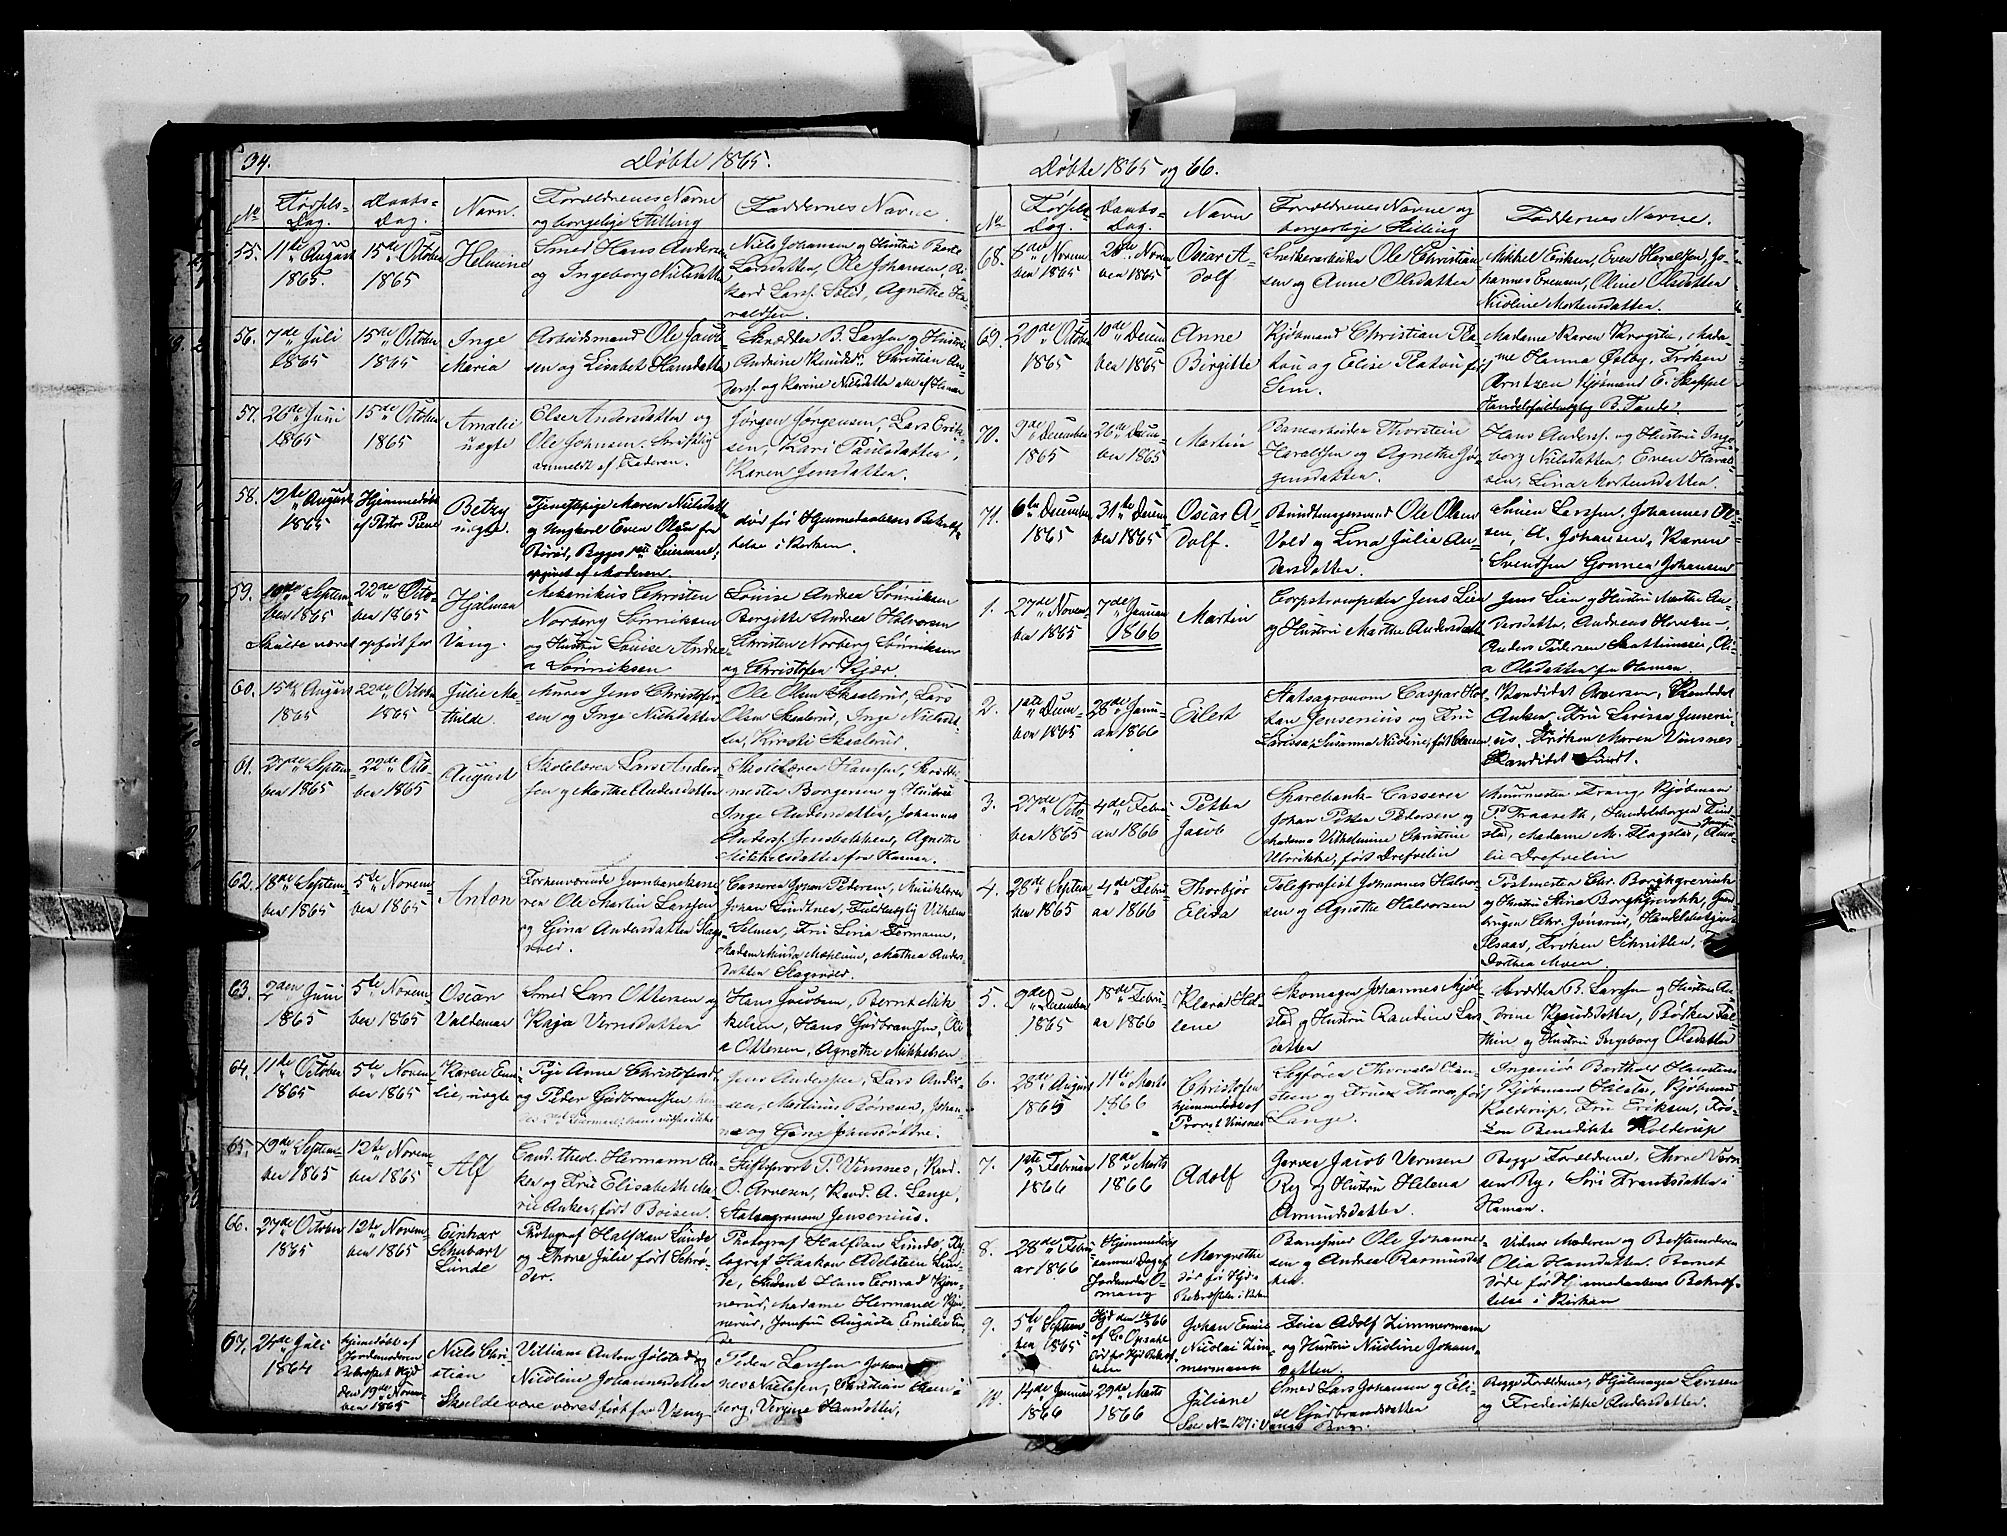 34.
Døbte 1865.
No
Fødsels-
Dag.
Daabs-
Dag.
Navn.
Forældrenes Navne
og borgelige Stilling
Faddernes Navne.
55.
11te August
1865.
15de October
1865
Helmine
Smed Hans Andersen
og Ingeborg Nielsdatter
Niels Johansen og Hustru
Larsdatter, Ole Johansen, Ri-
kard Larss. Solid, Agnethe Ha-
raldsen.
56.
7de Juli
1865
15de October
1865
Inge
Maria
Arbeidsmand Ole Jacob-
sen og Lisabet Hansdatter
Skrædder B. Larsen og Hustru
Andrine Knudsd. Christian An-
derss. og Karine Nielsdatter alle af Hamar
57.
26de Juni
1865
15de October
1865
Amalie
uægte
Else Andersdatter og
Ole Johnsen.
anmeldt af Faderen.
Jørgen Jørgensen, Lars Erik-
sen, Kari Paulsdatter,
Karen Jensdatter.
58.
12te August
1865
Hjemmedøbt
af Pastor
Betzy
uægte.
Tjenestepige Maren Nielsdatter
og Ungkarl Even Olsen fra
Begges 1ste Leiermaal,
opgivet af Moderen.
død før Hjemmedaabens Bekræf-
telse i Kirken.
59.
Septem-
ber 1865
22de Octo-
ber 1865
Hjalmar
Mekanikus Christen
Norberg Sønniksen
og Hustru Louise Andrea
Sønniksen
Louise Andrea Sønniksen
Birgitte Andrea Halvorsen
Christen Norberg Sønniksen
og Christofer Kjær.
Skulde været opført for Vang.
60.
15de August
1865
22de October
1865
Julie Ma-
thilde.
Murer Jens Christofer-
sen og Inge Nielsdatter
Ole Olsen Skaslerud, Lars
Olsen Skaslerud, Inge Nielsdat-
ter, Kirsti Skaslerud.
61.
27de Septem-
ber 1865
22de Octo-
ber 1865
August
Skolelærer Lars Anders-
sen og Marthe Andersdatter
Skolelærer Hansen,
mester Borgersen og Hustru
Inge Andersdatter, Johannes
Anderss. Jensbakken, Agnethe
Mikkelsdatter fra Hamar.
62.
18de Septem-
ber 1865
5te Novem-
ber 1865
Anton
Forhenværende Jernbanekasse-
rer Ole Martin Larssen
og Gina Andersdatter Slags-
vold.
Casserer Johan Pedersen, Musiklærer
Johan Lindtner, Fuldmægtig Vilhelm
Selmer, Fru Lina Fermann,
Madame Minda Mæhlum, Mathea Anders-
datter Slagsvold.
63.
2den Juni
1865
5te Novem-
ber 1865
Oscar
Valdemar
Smed Lars Ottersen og
Kaja Vernsdatter
Hans Jacobsen, Bernt Mik-
kelsen, Hans Gudbrandsen, Oli-
a Ottersen, Agnethe Mikkelsen
64.
11te October
1865
5te Novem-
ber 1865
Karen Emi-
lie, uægte
Pige Anne Christofersd.
og Peder Gudbransen
Jens Anderssen, Lars Ander-
sen, Martinus Børresen, Johan-
ne og Gine Hansdøttre.
65.
19de Septem-
ber 1865
12te Novem-
ber 1865
Alf
Cand. theol. Hermann An-
ker og Fru Elisabeth Ma-
rie Anker, født Boisen.
Stiftsprovst P. Vinsnes, Kand.
O. Arvesen, Kand. A. Lange,
Statsagronom Jensenius.
66.
27de October
1865
12te Novem-
ber 1865
Einhar
Schubart
Lunde
Photograf Halfdan Lunde
og Thore Julie født Schrø-
der.
Photograf Halfdan Lunde, Xy-
lograf Haakon Adelsteen Lun-
de, Student Hans Conrad Kjen-
nerud, Madame Hermand Kjen-
nerud, Jomfru Augusta Emilie Lun-
de
67.
24de Juli
1864
hjemmedøbt af
Jordemoderen
bekræftet
den 19de Novem-
ber 1865
Niels Chri-
stian
Villiam Anton Jølstad og
Nicoline Johannesdatter
Peder Larssen, Johan-
nes Nielssen, Christian
berg, Vergine Hansdatter,
Skulde være været ført for Vang
Døbte 1865 og 66.
No
Fødsels-
Dag.
Daabs-
Dag.
Navn
Forældrenes Navne og
borgerlige Stilling
Faddernes Navne.
68.
8de Novem-
ber 1865
26de Novem-
ber 1865
Oscar A-
dolf
Snedkerarbeider Ole Christian-
sen og Anne Olsdatter
Mikkel Eriksen, Even Haraldsen, Jo-
hannes Evensen, Oline Olsdatter
Nicoline Mortensdatter.
69.
20de October
1865
10de Decem-
ber 1865
Anne
Birgitte
Kjøbmand Christian Pla-
tou og Elise Platou født
Sem.
Madame Karen Mada-
me Hanna Østby, Frøken
Arntzen Kjøbmand E. Skappel
Handelsfuldmægtig B. Tande.
70.
9de December
1865
26de Decem-
ber 1865
Martin
Banearbeider Thorstein
Haraldsen og Agnethe Jør-
gensdatter.
Hans Anderss. og Hustru Inge-
borg Nielsdatter, Even Harald-
sen, Lina Mortensdatter.
71.
6te December
1865
31te Decem-
ber 1865
Oscar A-
dolf.
Ole Olsen
Vold og Lina Julie An-
dersdatter.
Simen Larssen, Johannes Ol-
sen, A. Johansen, Karen
Svendsen Gonnea Johansen
1.
27de Novem-
ber 1865
7de Januar
1866
Martin
Corpstrompeter Jens Lien
og Hustru Marthe Andersdatter
Jens Lien og Hustru Marthe An-
dersdatter, Andreas
Anders Pedersen
a Olsdatter fra Hamar.
2.
1ste Decem-
ber 1865
28de Janu-
ar 1866
Eilert
Statsagronom Caspar Hol-
tan Jensenius og Fru
Larissa Susanna Nicoline, født Claussen
Kandidat Arvesen, Kandidat
Anker, Fru Larissa Jenseni-
us, Frøken Maren Vinsnes
Kandidat Lundt.
3.
27de Octo-
ber 1865
4de Febru-
ar 1866
Petter
Jacob
Sparebank-Casserer
Johan Petter Pedersen og
Madame Vilhelmine Christine
Ulrikke, født Drefvelin
Frang, Kjøbmand
P. Fraaseth, Handelsborger Find-
stad, Madame M. Flagstad, Jomfru
lie Drefvelin
4.
28de Septem-
ber 1865
4de Febru-
ar 1866
Thorbjør
Elida
Telegrafist Johannes Halvor-
sen og Agnethe Halvorsen
Postmester Chr. Borchgrevink
og Hustru Stina Borchgrevink,
Chr. Jønsrud, Handelsbetjent
Frøken Schnitler,
Dorthea Moen.
5.
9de December
1865
18de Febru-
ar 1866
Klara Hel-
lene
Skomager Johannes Mjøl-
stad og Hustru Randine Lars-
datter
Skrædder B. Larssen og Hustru An-
drine Knudsdatter, Bødker
thin og Hustru Ingeborg Olsdatter
6.
28de August
1865
11te Marts
1866
Christofer
hjemmedøbt af
Provst Vinsnes
Sagfører Thorvald Clau-
sen og Frue Thora født
Lange.
Ingeniør Barthold
Kjøbmand Kjøbmand
Kolderup, Fru Eriksen, Frø-
ken Benedikte Kolderup
7.
1ste Februar
1866
18de Marts
1866
Adolf
Garver Jacob Vernsen
Ry og Hustru Helena
Amundsdatter.
Begge Forældrene, Thore Vern-
sen Ry, Siri Frantsdatter i
Hamar.
8.
28de Febru-
ar 1866
Hjemmedøbt
samme Dag af
Jordemoder O-
mang
Margrethe
død før Hjd.
Bekræftelse i Kirken
Banefører Ole Johannes-
sen og Andrea Rasmusdat-
ter.
Vidner Moderen og Bedstemoderen
Olia Hansdatter. Barnet
døde før Hjemmedaabens Bekræf-
telse i Kirken
9.
5te Septem-
ber 1865
Johan Emil
Nicolai Zim-
mermann
Adolf Zimmermann
og Hustru Nicoline Johans-
datter.
10.
14de Januar
1866
29de Marts
1866
Juliane
Smed Lars Johansen og Eli-
se Gudbrandsdatter
Begge Forældrene, Hjulmager Larsen
og Frederikke Andersdatter.
See No 127 i Vangs Bog.